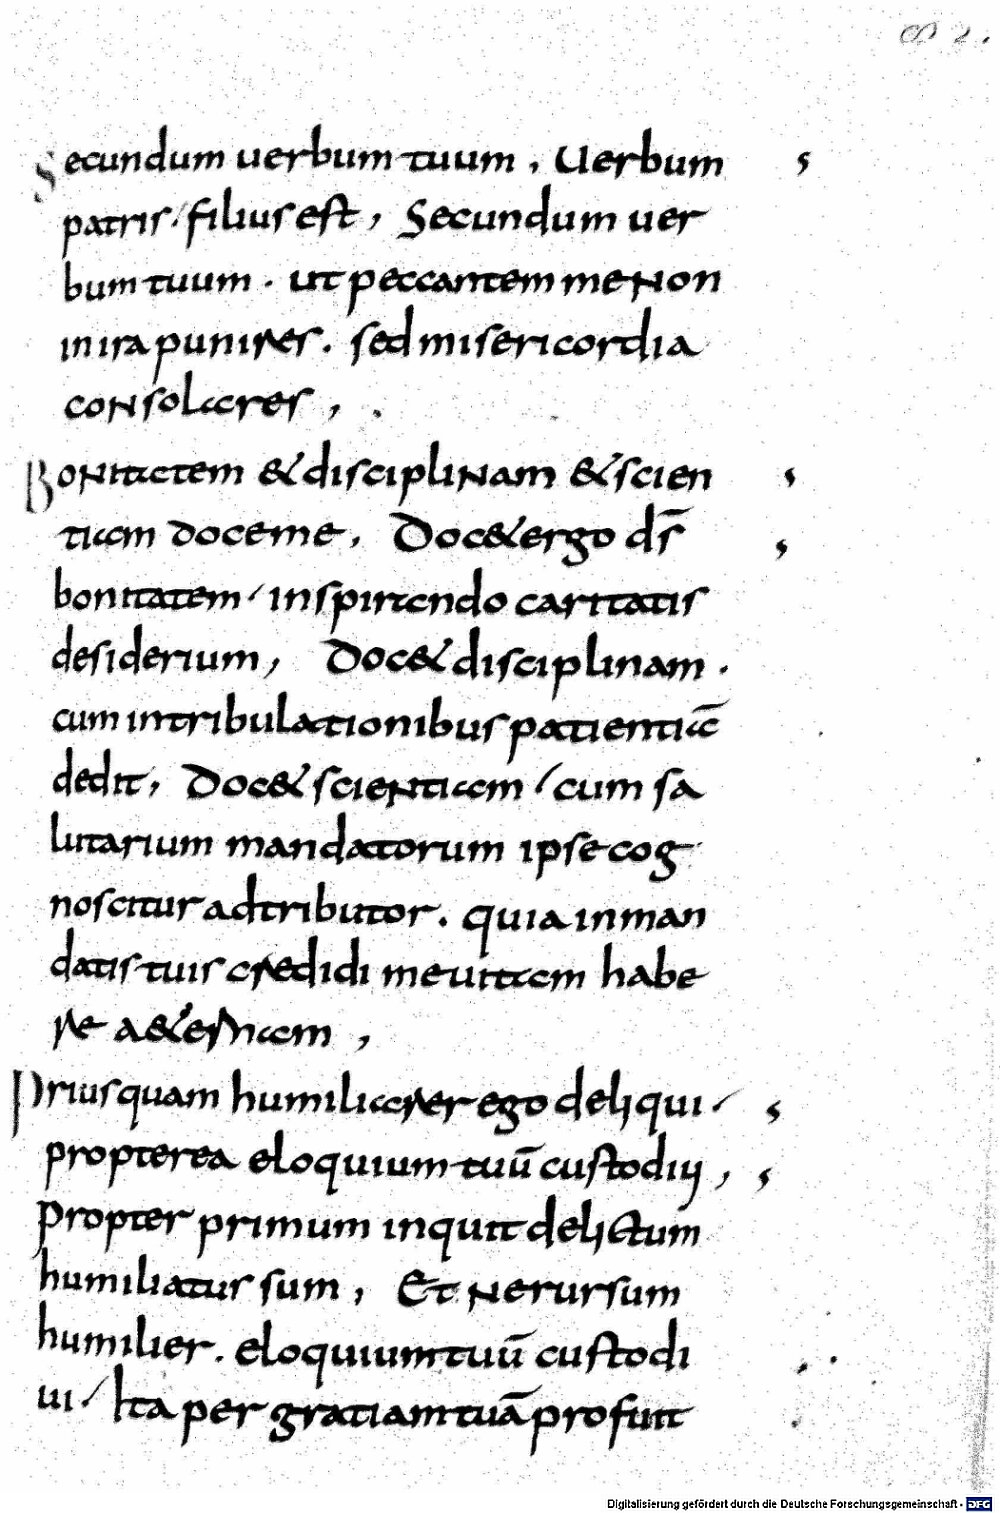 82.
Secundum uerbum tuum, Uerbum
patris filius est, Secundum uer
bum tuum. ut peccantem me non
in ira punires. sed misericordia
consolares,
Bonitatem & disciplinam & scien
tiam doce me, Doc& ergo ds̄
bonitatem inspirando caritatis
desiderium, Doc& disciplinam.
cum in tribulationibus patientiā
dedit, Doc& scientiam cum sa
lutarium mandatorum ipse cog
noscitur adtributor. quia in man
datis tuis credidi me uitam habe
re a&ernam,
Priusquam humiliarer ego deliqui
propterea eloquium tuū custodiui,
Propter primum inquit delictum
humiliatus sum, Et ne rursum
humilier. eloquium tuū custodi
ui Ita per gratiam tuā profuit
Digitalisierung gefördert durch die Deutsche Forschungsgemeinschaft - DFG